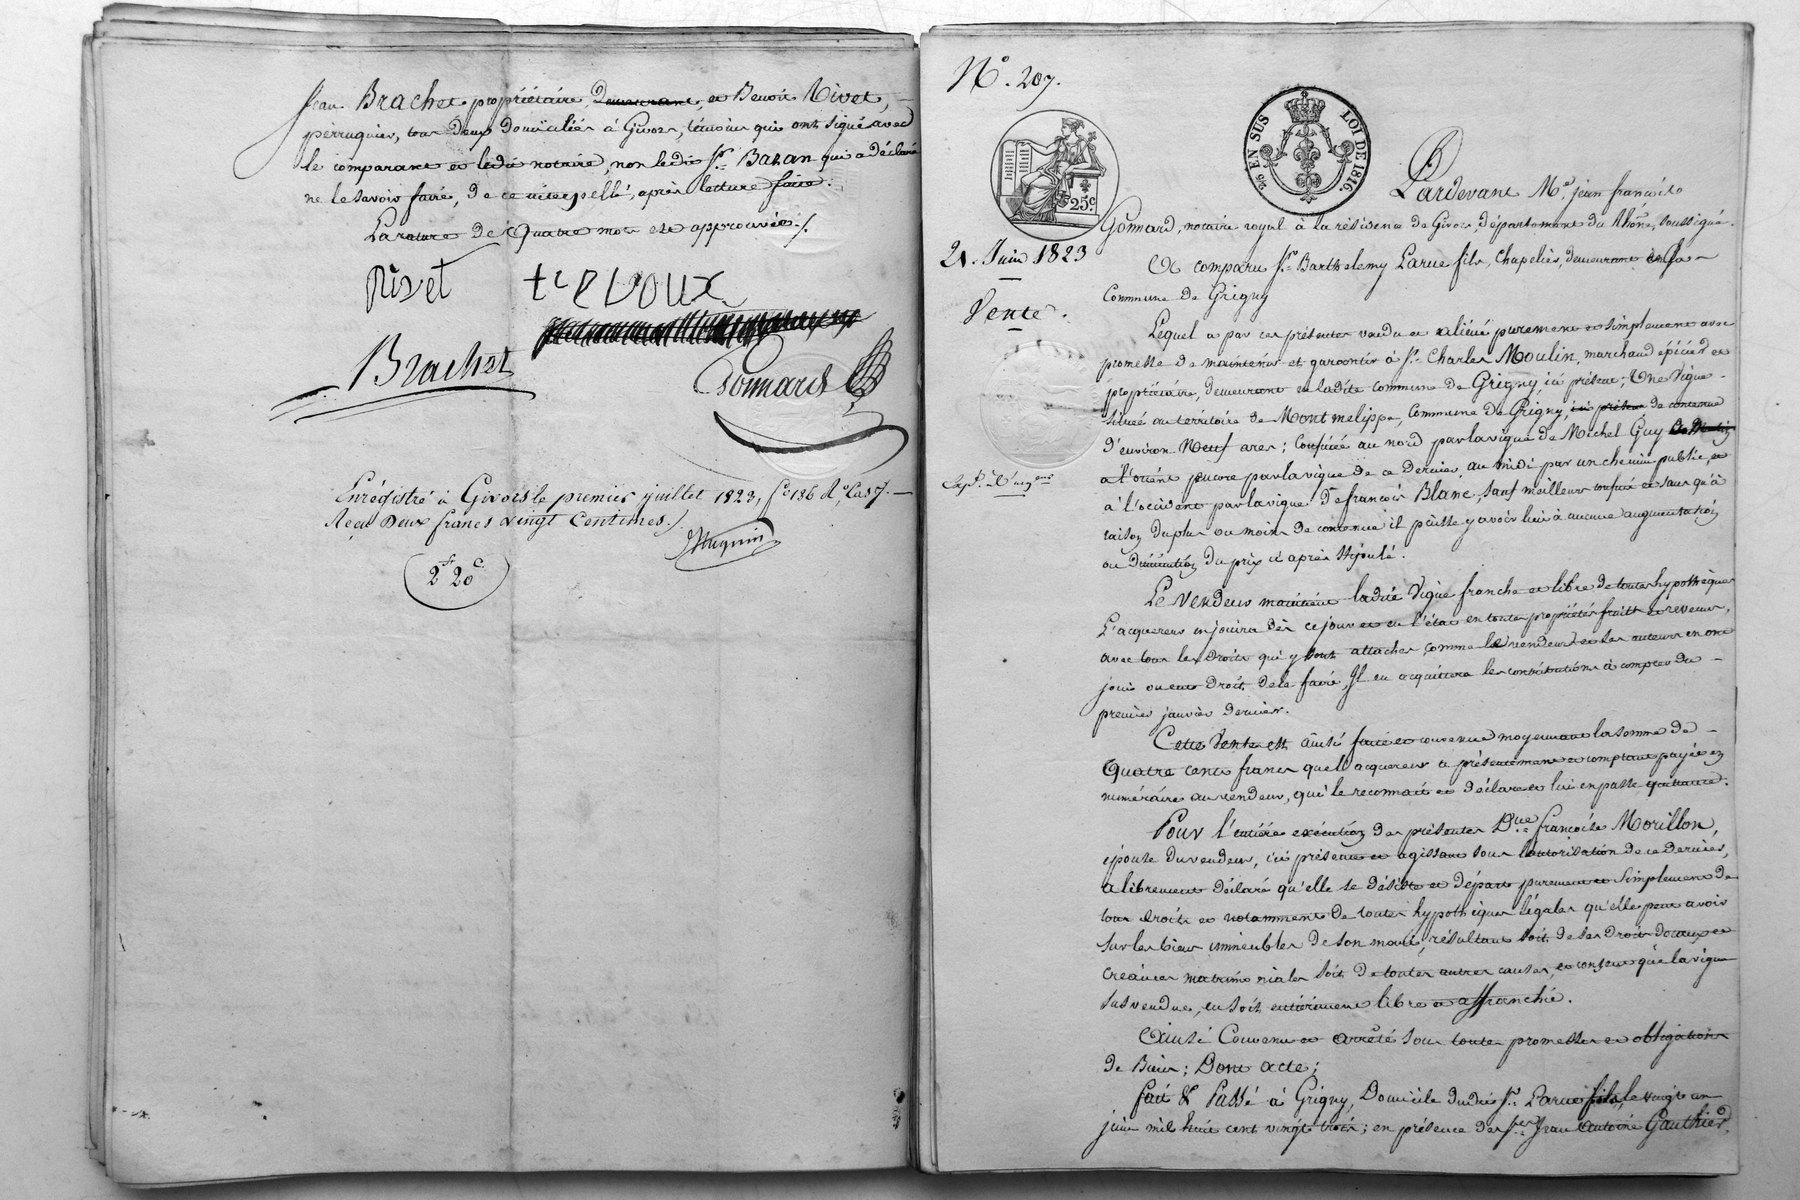 Jean Brachet propriétaire, demeurant, et Benoit Rivet,
perruquier, tous deux domiciliés à Givors, témoins qui ont signé avec
le comparant et ledit notaire, non ledit Sr. Bazan qui a déclaré
ne le savoir faire, de ce interpellé, après lecture faite.
La rature de Quatre mots est approuvée ./.
Rivet
Brachet
Gonnard
Enregistré à Givors le premier juillet 1823, fo 186
Reçu Deux francs vingt Centimes ./.
Huguin
2f 20c
No. 207.
25c
26 EN SUS LOI DE 1816.
21. Juin 1823
Vente.
Pardevant Me. jean françois
Gonnard, notaire royal à la résidence de Givors, département du Rhône, soussigné.
A comparu Sr. Barthelemy Larue fils, Chapelier, demeurant en la
Commune de Grigny
Lequel a par ces présentes vendu et aliéné purement et simplement avec
promesse de maintenir et garantir à Sr. Charles Moulin, marchand épicier et
propriétaire, demeurant en ladite commune de Grigny, ici présent; Une Vigne
située au territoire de Montmelippe, Commune de Grigny, ici présent de contenue
d'environ Neuf ares; Confinée au nord par la vigne de Michel Guy
à l'orient encore par la vigne de ce dernier, au midi par un chemin public, et
à l'occident par la vigne de françois Blanc, sauf meilleurs confins et sans qu'à
raison du plus ou moins de contenue il puisse y avoir lieu à aucune augmentation
ou diminution du prix ci après stipulé.
Le vendeur maintient ladite Vigne franche et libre de toutes hypothèques
L'acquereur en jouira dès ce jour et en l'état en toutes propriétés fruits et revenus,
avec tous les droits qui y sont attachés comme le vendeur et ses auteurs en ont
joui ou eu droit de le faire, Il en acquittera les contributions à compter du
premier janvier dernier.
Cette Vente est ainsi faite et convenue moyennant la somme de
Quatre cents francs que l'acquereur a présentement et comptant payée en
numéraire au vendeur, qui le reconnait et déclare et lui en passe quittance.
Pour l'entière exécution des présentes Dme. françoise Morillon,
épouse du vendeur, ici présente et agissant sous l'autorisation de ce dernier,
a librement déclaré qu'elle se désiste et départ purement et simplement de
tous droits et notamment de toutes hypothèques légales qu'elle peut avoir
sur les biens immeubles de son marié, résultant soit de ses droits dotaux et
créances matrimoniales soit de toutes autres causes, et consent que la vigne
susvendue, en soit entièrement libre et affranchie.
Ainsi Convenu et arrêté sous toutes promesses et obligations
de Biens; Dont acte;
fait & Passé à Grigny, Domicile dudit Sr. Larue fils, le vingt un
juin mil huit cent vingt trois; en présence des Srs. Jean Antoine Gauthier,